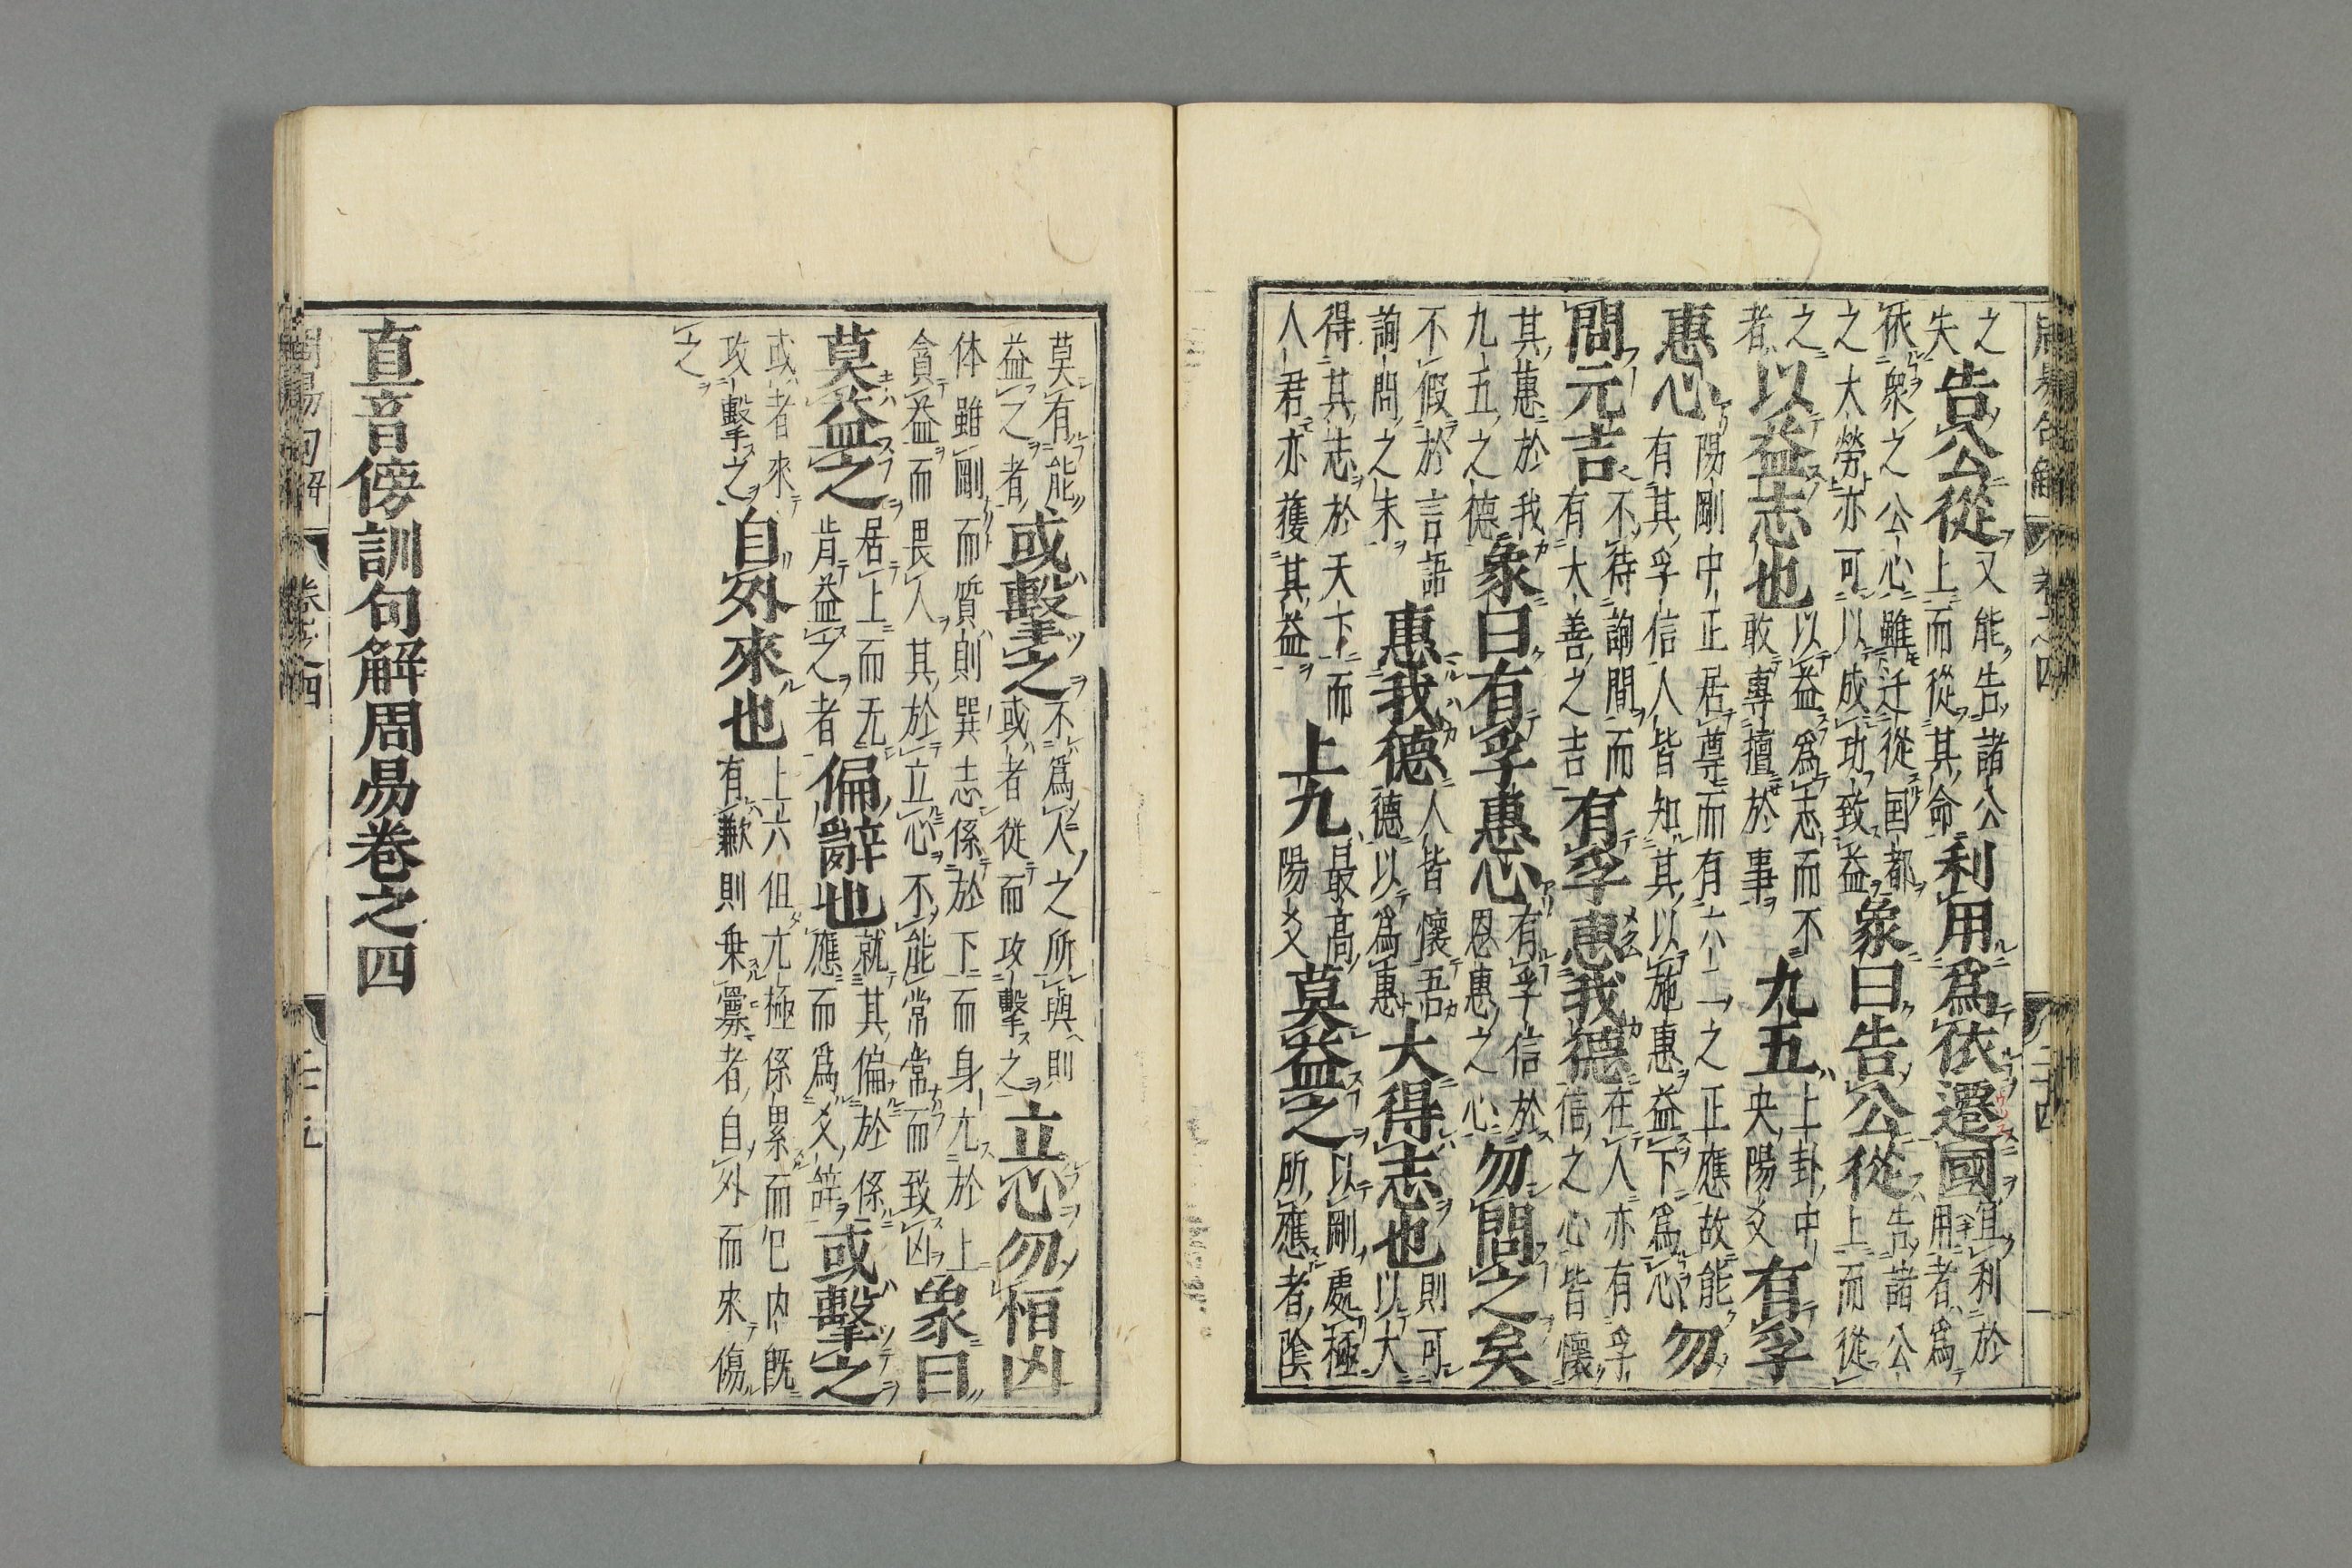 周易句解 卷之四 二十四
之失告公從又能告諸公上而從其命利用爲依遷國宜利於用者爲
依衆之公心雖迁從国都之大勞亦可以成功致益象曰告公從告諸公上而從
之者以益志也以益爲志而不敢專擅於事九五上卦中央陽爻有孚
惠心陽剛中正居尊而有六二之正應故能有其孚信人皆知其以施惠益下爲心勿
問元吉不待詢問而有大善之吉有孚惠我德在人亦有孚信之心皆懷
其惠於我九五之德象曰有孚惠心有孚信於恩惠之心勿問之矣
不假於言語詢問之末惠我德人皆懷吾德以爲惠大得志也則可以大
得其志於天下而人君亦獲其益上九最高陽爻莫益之以剛處極所應者陰
莫有能益之者或擊之不爲人之所與則或者從而攻擊之立心勿恒凶
体雖剛而質則巽志係於下而身亢於上貪益而畏人其於立心不能常常而致凶象曰
莫益之居上而无肯益之者偏辭也就其偏於係應而爲爻辞或擊之
或者來攻擊之自外來也上六但亢極係累而已内既有歉則乗釁者自外而來傷
之
直音傍訓句解周易卷之四
周易句解 卷之四